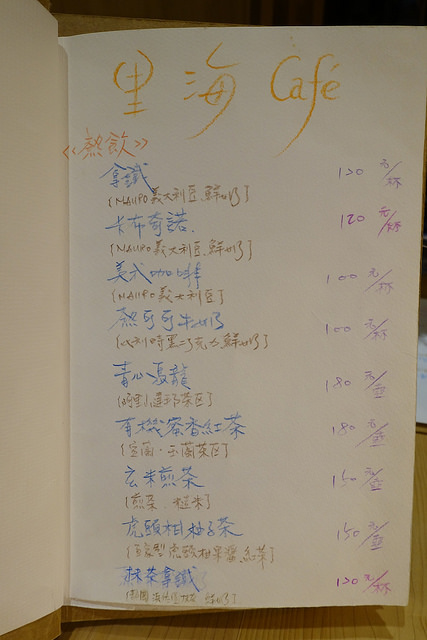 里海 Café
《熱飲》
拿鐵 120元/杯
(NAUPO義大利豆、鮮奶)
卡布奇諾. 120元/杯
(NAUPO義大利豆、鮮奶)
美式咖啡 100元/杯
(NAUPO義大利豆)
熱可可牛奶 100元/杯
(比利時黑巧克力、鮮奶)
青心烏龍 180元/壺
茶區)
有機蜜香紅茶 180元/壺
(宜蘭·玉蘭茶區)
玄米煎茶 150元/壺
(煎茶、糙米)
虎頭柑柚子茶 150元/壺
(自家製虎頭柑果醬、紅茶)
抹茶拿鐵 120元/杯
鮮奶)